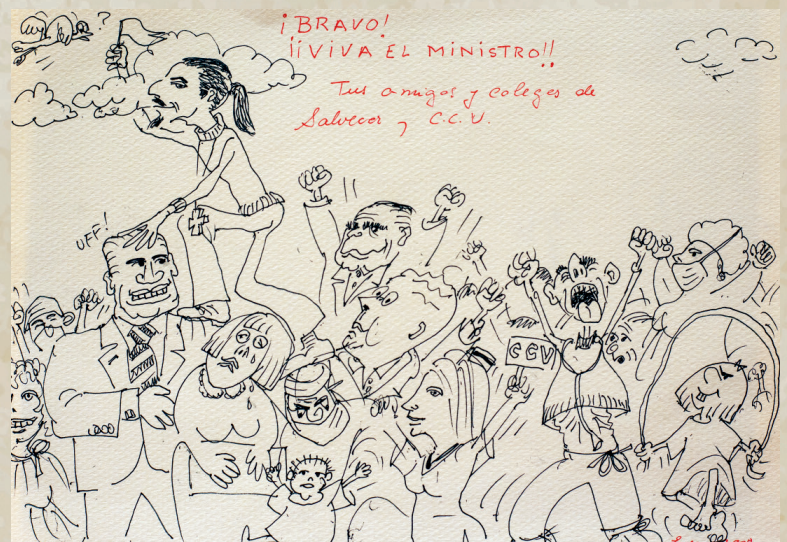 ?
¡BRAVO!
¡¡VIVA EL MINISTRO!!
Tus amigos y colegas de
Salvecor y C.C.V.
UFF!
CCV